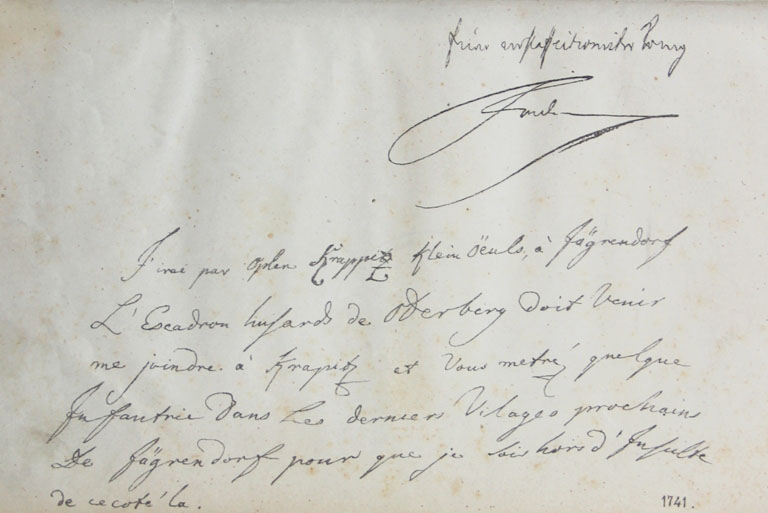 J'irai par Oplen Krappitz Klein Öeuls, à Jägrendorf
L'Escadron husards de Oderberg doit Venir
me joindre. à Krapitz et Vous metré quelque
Infantrie Dans Les derniers Vilages prochain
De Jägrendorf pour que je sois hors d'Insulte
de ce coté la.
1741.